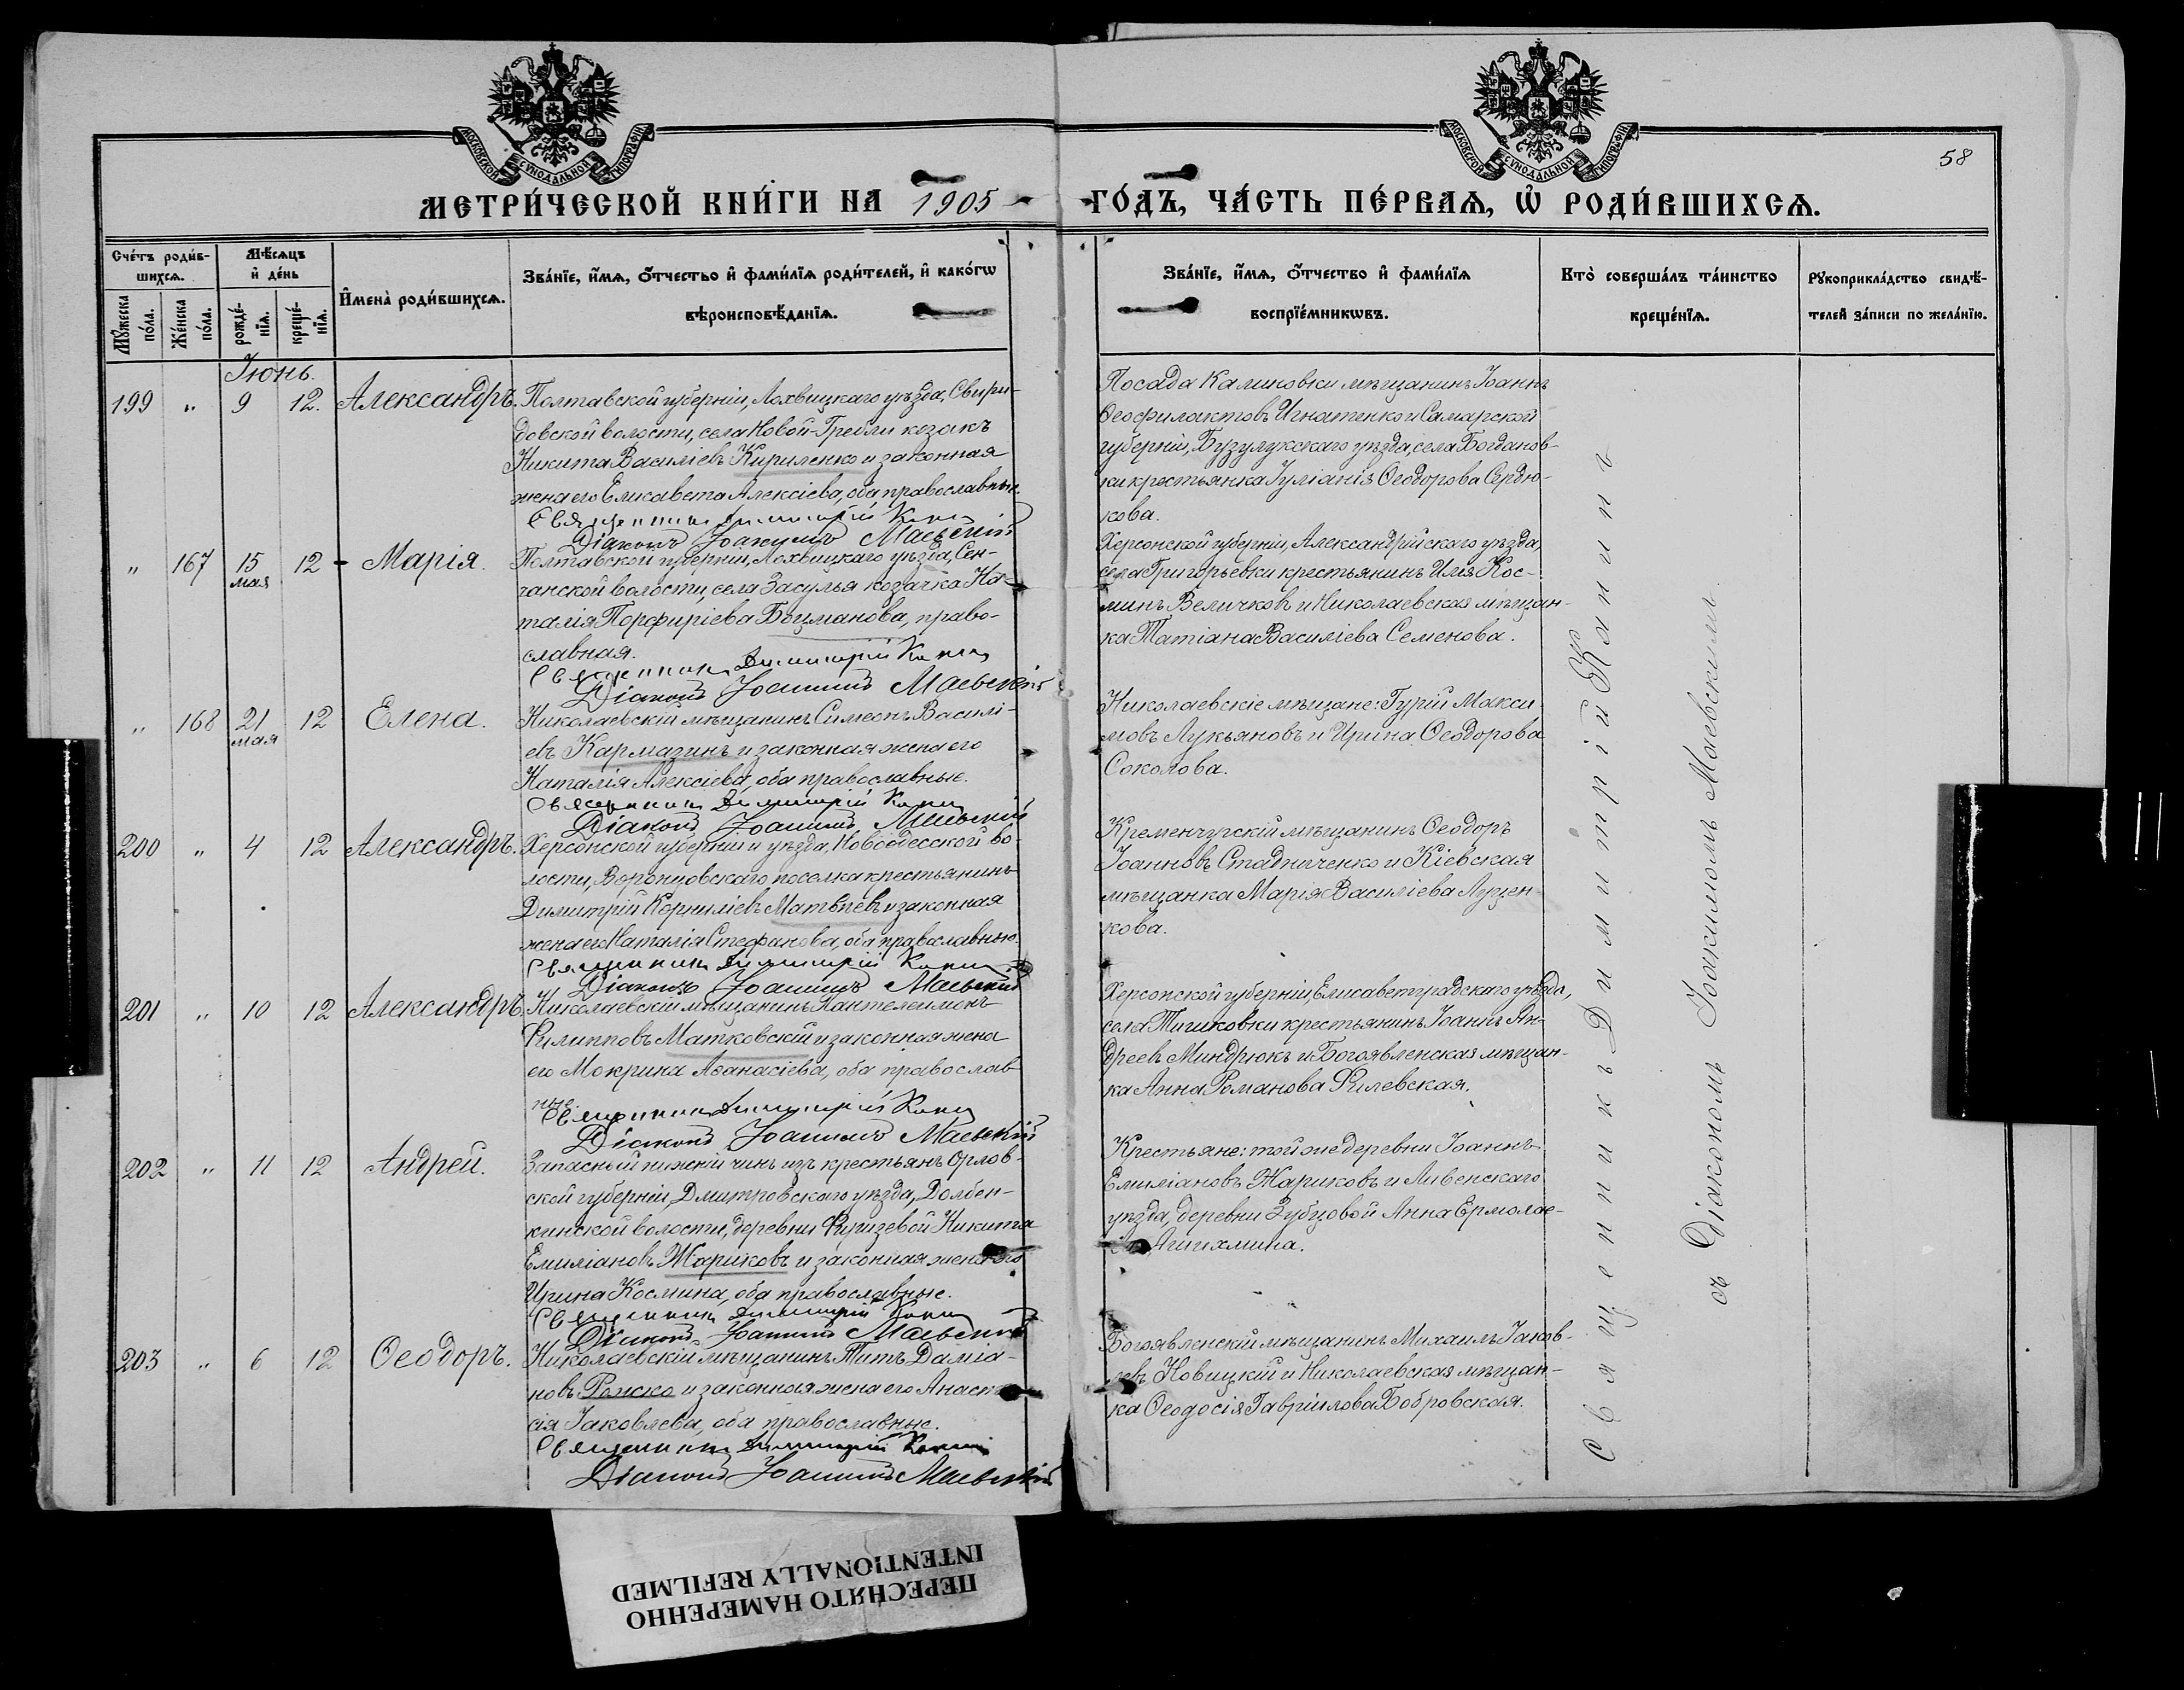 МОСКОВСКОЙ СѴНОДАЛЬНОЙ ТИПОГРАФІИ
МОСКОВСКОЙ СѴНОДАЛЬНОЙ ТИПОГРАФІИ
58
МЕТРИ́ЧЕСКОЙ КНИ́ГИ НА 1905
ГО́ДЪ, ЧА́СТЬ ПЕ́РВАѦ, Ѡ҆ РОДИ́ВШИХСѦ.
Сче́тъ роди́в-
шихсѧ.
Мꙋжеска по́ла.
Же́нска по́ла.
Мѣ́сѧцъ
и҆ де́нь
рожде́-
нїѧ.
креще́-
нїѧ.
И҆мена̀ роди́вшихсѧ.
Зва́нїе, и҆́мѧ, ѻ҆́тчестьо и҆ фами́лїѧ роди́телей, и҆ како́гѡ
вѣроисповѣ́данїѧ.
Зва́нїе, и҆́мѧ, ѻ҆́тчество и҆ фами́лїѧ
воспрїе́мникѡвъ.
Кто̀ соверша́лъ та́инство
креще́нїѧ.
Рꙋкоприкла́дство свидѣ́-
телей за́писи по жела́нїю.
Іюнь.
199 „ 9 12. Александръ. Полтавской губерніи, Лохвицкаго уѣзда, Свири-
довской волости, села Новой-Гребли козакъ
Никита Василіевъ Кириленко и законная
жена его Елисавета Алексіева, оба православные.
Священникъ Димитрій
Діаконъ Іоакимъ Маевскій
Посада Калиновки мѣщанинъ Іоаннъ
Ѳеофилактовъ Игнатенко и Самарской
губерніи, Бузулукскаго уѣзда, села Богданов-
ки крестьянка Іуліанія Ѳеодорова Сердю-
кова.
„ 167 15 мая 12 Марія. Полтавской губерніи, Лохвицкаго уѣзда, Сен-
чанской волости, села Засулья козачка На-
талія Порфиріева Боцманова, право-
славная.
Священникъ Димитрій
Діаконъ Іоакимъ Маевскій
Херсонской губерніи, Александрійскаго уѣзда,
села Григорьевки крестьянинъ Илія Кос-
минъ Величковъ и Николаевская мѣщан-
ка Татіана Василіева Семенова.
„ 168 21 мая 12 Елена. Николаевскій мѣщанинъ Симеонъ Василі-
евъ Кармазинъ и законная жена его
Наталія Алексіева, оба православные.
Священникъ Димитрій
Діаконъ Іоакимъ Маевскій
Николаевскіе мѣщане: Гурій Макси-
мовъ Лукьяновъ и Ирина Ѳеодорова
Соколова.
200 „ 4 12 Александръ. Херсонской губерніи и уѣзда, Новоодесской во-
лости, Воронцовскаго поселка крестьянинъ
Димитрій Корниліевъ Матвѣевъ и законная
жена его Наталія Стефанова, оба православные.
Священникъ Димитрій
Діаконъ Іоакимъ Маевскій
Кременчугскій мѣщанинъ Ѳеодоръ
Іоанновъ Стадниченко и Кіевская
мѣщанка Марія Василіева Луцен-
кова.
201 „ 10 12 Александръ. Николаевскій мѣщанинъ Пантелеимонъ
Филипповъ Матковскій и законная жена
его Мокрина Аѳанасіева, оба православ-
ные.
Священникъ Димитрій
Діаконъ Іоакимъ Маевскій
Херсонской губерніи, Елисаветградскаго уѣзда,
села Тишковки крестьянинъ Іоаннъ Ан-
дреевъ Миндрюкъ и Богоявленская мѣщан-
ка Анна Романова Филевская.
202 „ 11 12 Андрей. Запасный нижній чинъ изъ крестьянъ Орлов-
ской губерніи, Дмитровскаго уѣзда, Долбен-
кинской волости, деревни Никита
Емиліановъ Жариковъ и законная жена его
Ирина Космина, оба православные.
Священникъ Димитрій
Діаконъ Іоакимъ Маевскій
Крестьяне: той же деревни Іоаннъ
Емиліановъ Жариковъ и Ливенскаго
уѣзда, деревни Зубцовой Анна Ермолае-
203 „ 6 12 Ѳеодоръ. Николаевскій мѣщанинъ Титъ Даміа-
новъ и законная жена его Анаста-
сія Іаковлева, оба православные.
Священникъ Димитрій
Діаконъ Іоакимъ Маевскій
Богоявленскій мѣщанинъ Михаилъ Іаков-
левъ Новицкій и Николаевская мѣщан-
ка Ѳеодосія Гавріилова Бобровская.
Священникъ Димитрій
съ Діакономъ Іоакимомъ Маевскимъ
ПЕРЕСНЯТО НАМЕРЕННО
INTENTIONALLY REFILMED